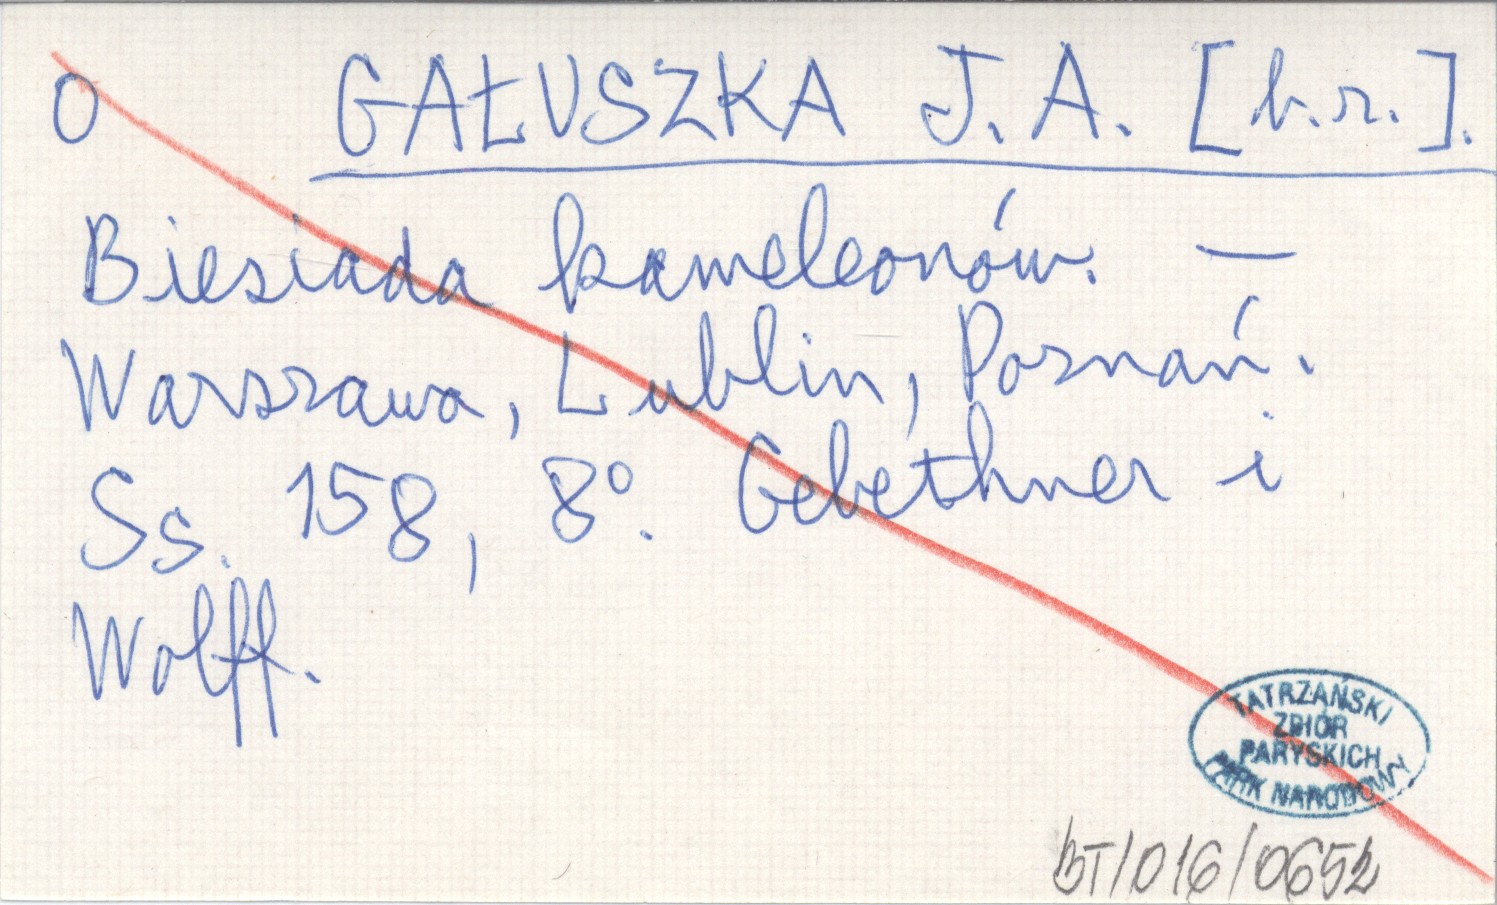 O GAŁUSZKA J. A. [b.r.].
Biesiada kameleonów. —
Warszawa, Lublin, Poznań.
Ss. 158, 8°. Gebethner i
Wolff.
TATRZAŃSKI
ZBIÓR
PARYSKICH
PARK NARODOWY
BT/016/0652